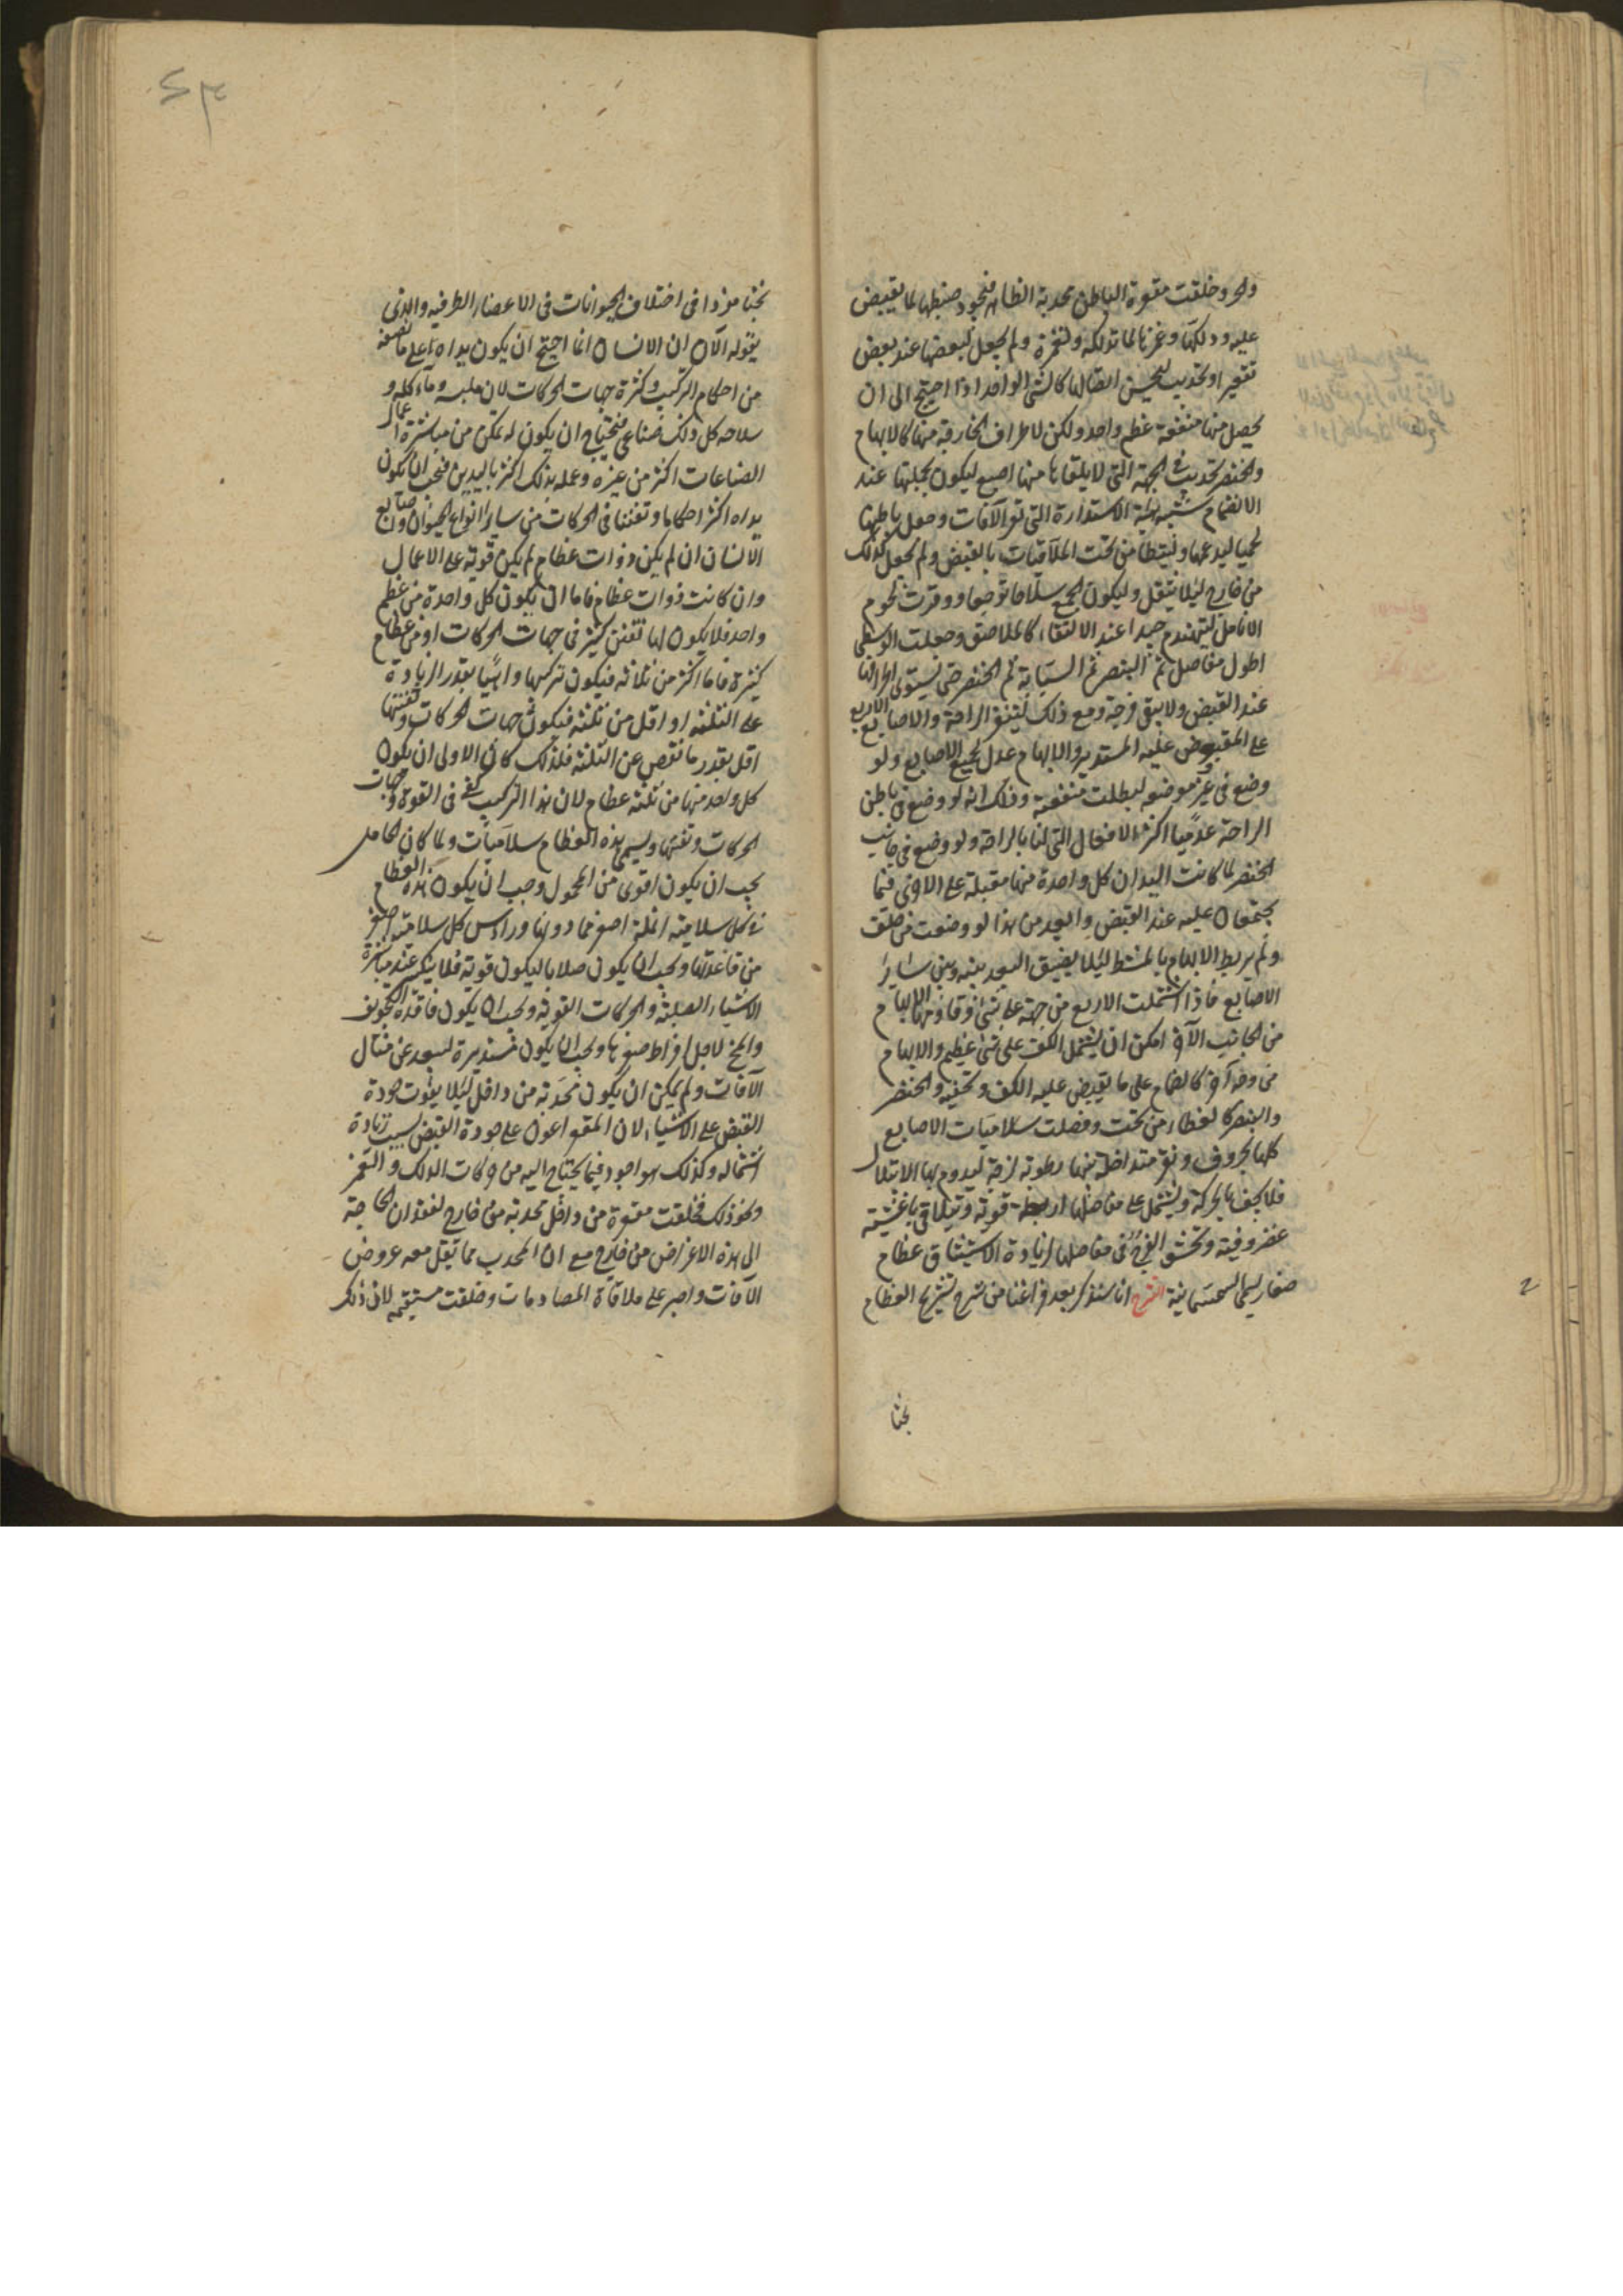 والجر وخلقت مقعرة الباطن محدبة الظاهر فيجود ضبطها لما يقبض
عليه ودلكها وغمزها لما تدلكه وتغمزه ولم يجعل لبعضها عند بعض
تقعير او تحديب ليحسن اتصالها كالشى الواحد اذا احتيج الى ان
يحصل منها منفعة عظم واحد ولكن لاطراف الخارقة منها كالابهام
والخنصر تحديب فى الجهة التى لا يلقاها منها اصبع ليكون بجملتها عند
الانضمام شبيه هيئة الاستدارة التى تقى الآفات وجعل باطنها
لحميا ليدعمها وليتطامن تحت الملاقيات بالقبض ولم يجعل كذلك
من خارج ليلا يثقل وليكون الجمع سلاحا موجعا ووفرت لحوم
الانامل ليتهندم جيدا عند الالتقاء كالملاصق وجعلت الوسطى
اطول مفاصل ثم البنصر ثم السبابة ثم الخنصر حتى يستوى اطرافها
عند القبض ولا يبقى فرجة ومع ذلك ليتقعر الراحة والاصابع الاربع
على المقبوض عليه المستدير والابهام عدل لجميع الاصابع ولو
وضع فى غير موضعه لبطلت منفعته وذلك انه لو وضع فى باطن
الراحة عدمنا اكثر الافعال التى لنا بالراحة ولو وضع فى جانب
الخنصر لما كانت اليدان كل واحدة منها مقبلة على الاخرى فيما
يجتمعان عليه عند القبض وابعد من هذا لو وضعت من خلف
ولم يربط الابهام بالمشط ليلا يضيق البعد بينه وبين سائر
الاصابع فاذا اشتملت الاربع من جهة على شئ وقاومها الابهام
من الجانب الآخر امكن ان يشتمل الكف على شئ عظيم والابهام
من وجه آخر كالصمام على ما يقبض عليه الكف وتخفيه والخنصر
والبنصر كالغطاء من تحت ووصلت سلاميات الاصابع
كلها بحروف ونقر متداخلة بينها رطوبة لزجة ليدوم بها الابتلال
فلا يجف بالحركة ويشتمل على مفاصلها اربطة قوية وتتلاقى باغشية
غضروفية وتحشو الفرج فى مفاصلها لزيادة الاستيثاق عظام
صغار يسمى السمسمانية الشرح انا سنذكر بعد فراغنا من شرح تشريح العظام
بحثا
٤٣
بحثا مفردا فى اختلاف الحيوانات فى الاعضاء الطرفيه والذى
نقوله الآن ان الانسان انما احتيج ان يكون يداه على ما نصفه
من احكام التركيب وكثرة جهات الحركات لان ملبسه وماءكله و
سلاحه كل ذلك صناعى فيحتاج ان يكون له تمكن من مباشرة اعمال
الصناعات اكثر من غيره وعمله بذلك اكثر باليدين فيجب ان يكون
يداه اكثر احكاما وتفننا فى الحركات من ساير انواع الحيوان واصابع
الانسان ان لم يكن ذوات عظام لم يكن قوية على الاعمال
وان كانت ذوات عظام فاما ان يكون كل واحدة من عظم
واحد فلا يكون لها تفنن كثير فى جهات الحركات او من عظام
كثيرة فاما اكثر من ثلاثه فيكون تركيبها واهيا بقدر الزيادة
على الثلثه او اقل من ثلثه فيكون جهات الحركات وتفننها
اقل بقدر ما نقص عن الثلثه فلذلك كان الاولى ان يكون
كل واحد منها من ثلثه عظام لان هذا التركيب كفى فى القوة وجهات
الحركات وتفننها ويسمى هذه العظام سلاميات ولما كان الحامل
يجب ان يكون اقوى من المحمول وجب ان يكون هذه العظام
فى كل سلاميه انملة اصغر مما دونها وراءس كل سلاميه اصغر
من قاعدتها ويجب ان يكون صلابا ليكون قوية فلا ينكسر عند مباشرة
الاشياء الصلبة والحركات القوية ويجب ان يكون فاقدة التجويف
والمخ لاجل افراط صغرها ويجب ان يكون مستديرة ليبعد عن منال
الآفات ولم يمكن ان يكون محدبة من داخل ليلا يفوت جودة
القبض على الاشياء لان المقعر اعون على جودة القبض بسبب زيادة
اشتماله وكذلك هو اجود فيما يحتاج اليه من حركات الدلك والتغمز
ونحو ذلك فخلقت مقعرة من داخل محدبة من خارج لفقدان الحاجة
الى هذه الاغراض من خارج مع ان المحدب مما تقل معه عروض
الآفات واصبر على ملاقاة المصادمات وخلقت مستقيمه لان ذلك